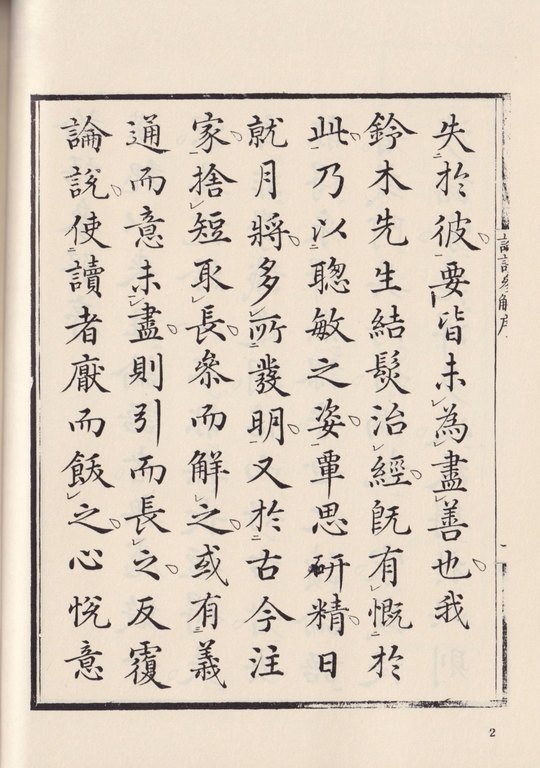 失於彼要皆未為盡善也我
鈴木先生結髮治經既有慨於
此乃以聰敏之姿覃思研精日
就月將多所發明又於古今注
家捨短取長參而解之或有義
通而意未盡則引而長之反覆
論說使讀者厭而飫之心悅意
論語參解序
2